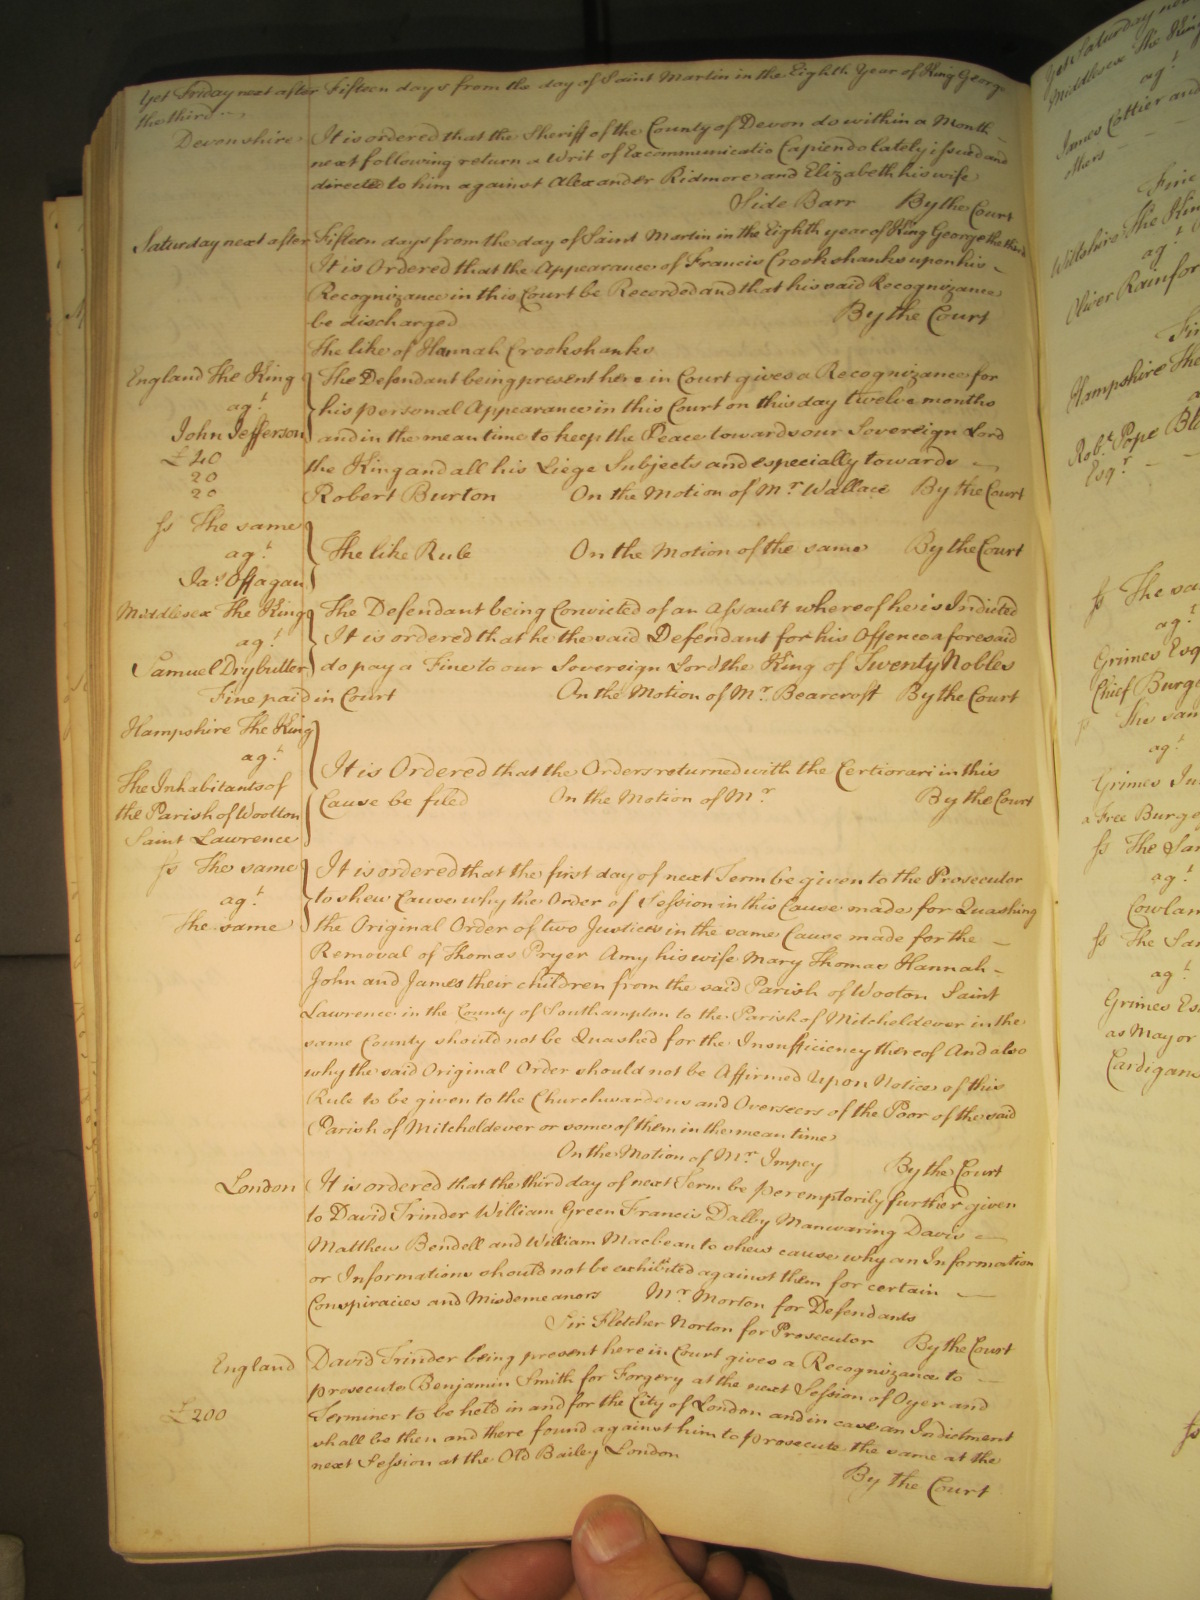 Yet Friday next after Fifteen days from the day of Saint Martin in the Eighth Year of King George
the third
Devonshire It is ordered that the Sheriff of the County of Devon do within a Month
next following return a Writ of Excommunicatio Capiendo lately issued and
directed to him against Alexander Ridmore and Elizabeth his wife
Side Barr By the Court
Saturday next after Fifteen days from the day of Saint Martin in the Eighth year of King George the third
It is Ordered that the Appearance of Francis Crookshanks upon his
Recognizance in this Court be Recorded and that his said Recognizance
be discharged By the Court
The like of Hannah Crookshanks
England The King The Defendant being present here in Court gives a Recognizance for
agt. his personal Appearance in this Court on this day twelve months
John Jefferson and in the mean time to keep the Peace towards our Sovereign Lord
£40 the King and all his Liege Subjects and especially towards
20
20 Robert Burton On the Motion of Mr. Wallace By the Court
ss The same
agt. The like Rule On the Motion of the same By the Court
Jas. Offagan
Middlesex The King The Defendant being Convicted of an Assault whereof he is Indicted
agt. It is ordered that he the said Defendant for his Offence aforesaid
Samuel Drybutter do pay a Fine to our Sovereign Lord the King of Twenty Nobles
Fine paid in Court On the Motion of Mr. Bearcroft By the Court
Hampshire The King
agt. It is Ordered that the Orders returned with the Certiorari in this
The Inhabitants of
the Parish of Wootton Cause be filed On the Motion of Mr. By the Court
Saint Lawrence
ss The same It is ordered that the first day of next Term be given to the Prosecutor
agt. to shew Cause why the Order of Session in this Cause made for Quashing
The same the Original Order of two Justices in the same Cause made for the
Removal of Thomas Pryer Amy his wife Mary Thomas Hannah
John and James their children from the said Parish of Wooton Saint
Lawrence in the County of Southampton to the Parish of Mitcheldever in the
same County should not be Quashed for the Insufficiency thereof And also
why the said Original Order should not be Affirmed Upon Notice of this
Rule to be given to the Churchwardens and Overseers of the Poor of the said
Parish of Mitcheldever or some of them in the mean time
On the Motion of Mr. Impey By the Court
London It is ordered that the third day of next Term be peremptorily further given
to David Trinder William Green Francis Dalby Manwaring Davis
Matthew Bendell and William Macbean to shew cause why an Information
or Informations should not be exhibited against them for certain
Conspiracies and Misdemeanors Mr. Morton for Defendants
Sir Fletcher Norton for Prosecutor By the Court
England David Trinder being present here in Court gives a Recognizance to
prosecute Benjamin Smith for Forgery at the next Session of Oyer and
£200 Terminer to be held in and for the City of London and in case an Indictment
shall be then and there found against him to prosecute the same at the
next Session at the Old Bailey London
By the Court
Yet Saturday
Middlesex The King
agt.
James Cottier and
others
Fine
Wiltshire The King
agt.
Oliver Rainfor
Hampshire The
Robt. Pope
Esqr.
ss The sa
agt.
Grimes Esq
Chief Burge
The sam
agt.
Grimes
a Free Burge
ss The Sam
agt.
Cowlan
ss The Sam
agt.
Grimes Es
as Mayor
Cardigan